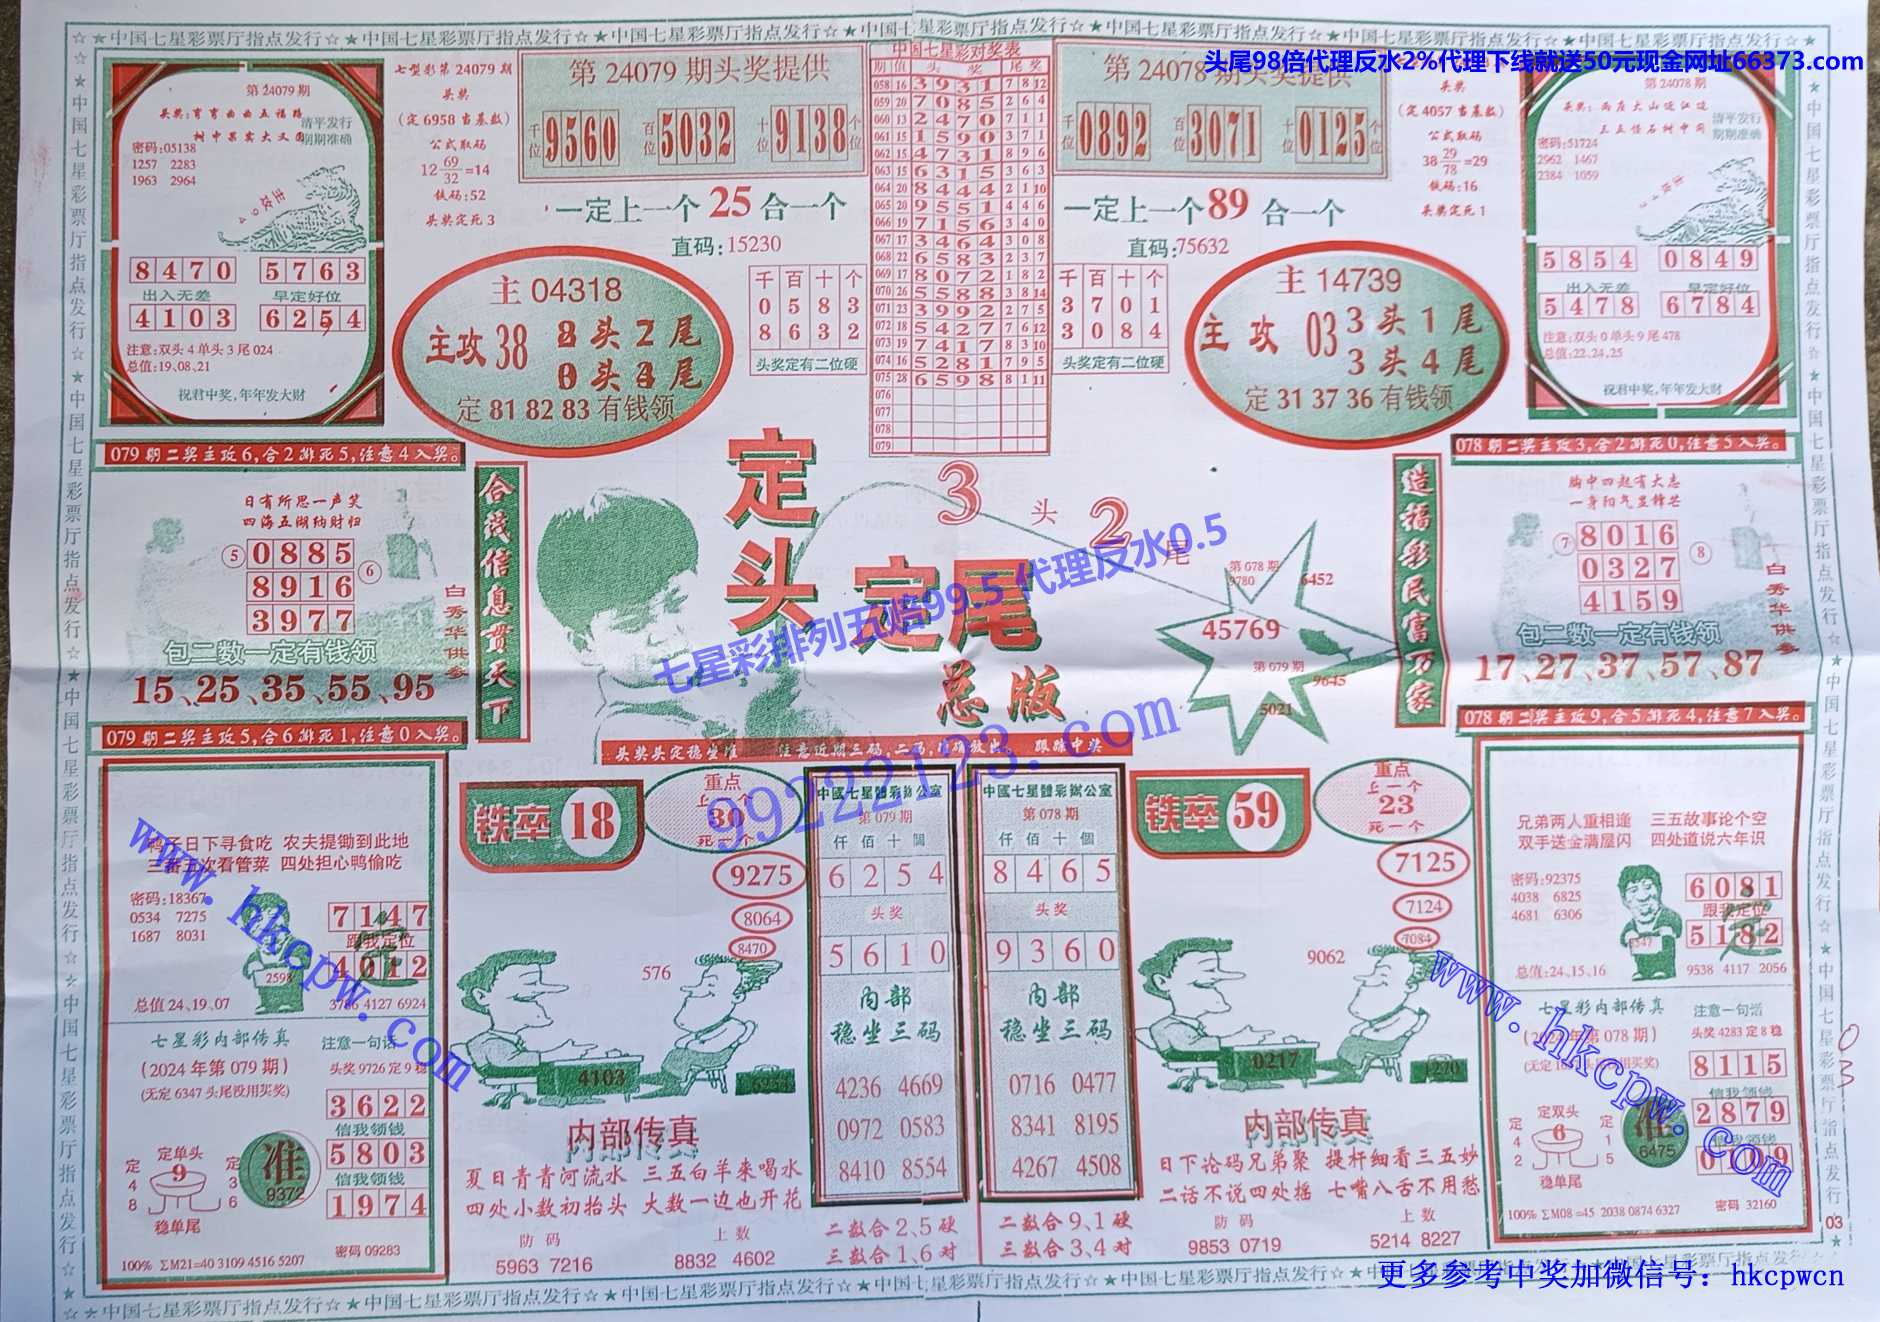 ☆★中国七星彩票厅指点发行☆★中国七星彩票厅指点发行☆★中国七星彩票厅指点发行☆★中国七星彩票厅指点发行☆★中国七星彩票厅指点发行
头尾98倍代理反水2%代理下线就送50元现金网址66373.com
第 24079 期
头奖:弯弯曲曲五福路
树中果实大又圆
清平发行
期期准确
密码:05138
1257 2283
1963 2964
8470 5763
出入无差 早定好位
4103 6254
注意:双头 4 单头 3 尾 024
总值:19,08,21
祝君中奖,年年发大财
七型彩第 24079 期
头奖
(定 6958 当基数)
公式取码
12 69/32 =14
铁码:52
头奖定死 3
第 24079 期头奖提供
千位 9560 百位 5032 十位 9138 个位
一定上一个 25 合一个
直码:15230
主 04318
主攻 38
定 81 82 83 有钱领
千百十个
0583
8632
头奖定有二位硬
中国七星彩对奖表
期 值 头奖 尾奖
058 16 3931 7 8 12
059 20 7085 2 6 4
060 13 2470 7 1 1
061 15 1590 3 7 1
062 15 4731 8 9 6
063 15 6315 3 6 3
064 20 8444 2 1 10
065 20 9551 4 4 6
066 19 7156 3 4 0
067 17 3464 3 0 8
068 22 6583 2 3 7
069 17 8072 1 8 2
070 26 5588 3 8 14
071 23 3992 2 7 5
072 18 5427 7 6 12
073 19 7417 8 3 10
074 16 5281 7 9 5
075 28 6598 8 1 11
076
077
078
079
第 24078 期头奖提供
千位 0892 百位 3071 十位 0125 个位
一定上一个 89 合一个
直码:75632
千百十个
3701
3084
头奖定有二位硬
主 14739
主攻 03 3头1尾
3头4尾
定 31 37 36 有钱领
头奖
(定 4057 当基数)
公式取码
38 29/78 =29
铁码:16
头奖定死 1
第 24078 期
头奖:两岸大山近江边
三五怪石树中间
清平发行
期期准确
密码:51724
2962 1467
2384 1059
5854 0849
出入无差 早定好位
5478 6784
注意:双头 0 单头 9 尾 478
总值:22,24,25
祝君中奖,年年发大财
079 期二奖主攻 6,合 2 排死 5,注意 4 入奖。
日有所思一声笑
四海五湖纳财归
⑤ 0885
8916 ⑥
3977
白秀华供参
包二数一定有钱领
15、25、35、55、95
079 期二奖主攻 5,合 6 排死 1,注意 0 入奖。
合诚信息贯天下
定头
定尾
总版
3头2尾
七星彩排列五赔99.5 代理反水0.5
99222123.com
头奖头定稳坐准 注意近期三码,二码,准确放出。 跟踪中奖
第 078 期
9780
6452
45769
第 079 期
9645
5021
造福彩民富万家
078 期二奖主攻 3,合 2 排死 0,注意 5 入奖。
胸中四起有大志
一身阳气显锋芒
⑦ 8016
0327 ⑧
4159
白秀华供参
包二数一定有钱领
17、27、37、57、87
078 期二奖主攻 9,合 5 排死 4,注意 7 入奖。
鸭子日下寻食吃 农夫提锄到此地
三番五次看管菜 四处担心鸭偷吃
密码:18367
0534 7275
1687 8031
7147
跟我定位
4012
2598
总值 24、19、07
3786 4127 6924
七星彩内部传真
(2024 年第 079 期)
(无定 6347 头尾没用买奖)
注意一句话
头奖 9726 定 9 稳
3622
信我领钱
5803
信我领钱
1974
定单头
定 4 8
9
定 3 6
稳单尾
准
9372
100% ΣM21=40 3109 4516 5207
密码 09283
www.hkcpw.com
铁卒 18
重点
上一个
30
死一个
9275
8064
8470
576
4103
6254
内部传真
夏日青青河流水 三五白羊来喝水
四处小数初抬头 大数一边也开花
防码 上数
5963 7216 8832 4602
中國七星體彩辦公室
第 079 期
仟佰十個
6254
头奖
5610
内部
稳坐三码
4236 4669
0972 0583
8410 8554
二数合 2、5 硬
三数合 1、6 对
中國七星體彩辦公室
第 078 期
仟佰十個
8465
头奖
9360
内部
稳坐三码
0716 0477
8341 8195
4267 4508
二数合 9、1 硬
三数合 3、4 对
铁卒 59
重点
上一个
23
死一个
7125
7124
7084
9062
0217
1270
内部传真
日下论码兄弟聚 提杆细看三五妙
二话不说四处摇 七嘴八舌不用愁
防码 上数
9853 0719 5214 8227
兄弟两人重相逢 三五故事论个空
双手送金满屋闪 四处道说六年识
密码:92375
4038 6825
4681 6306
6081
跟我定位
5182
总值:24、15、16
9538 4117 2056
七星彩内部传真
注意一句话
头奖 4283 定 8 稳
8115
信我领钱
2879
信我领钱
定双头
定 4 2
6
定 1 5
稳单尾
准
6475
100% ΣM08 =45 2038 0874 6327
密码 32160
www.hkcpw.com
03
更多参考中奖加微信号：hkcpwcn
☆★中国七星彩票厅指点发行☆★中国七星彩票厅指点发行☆★中国七星彩票厅指点发行